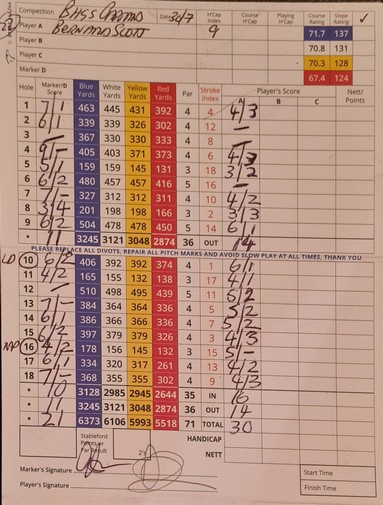 Competition Date 30/7 H'Cap Index Course H'Cap Playing H'Cap Course Rating Slope Rating
Player A 9 71.7 137
Player B 70.8 131
Player C 70.3 128
Marker D 67.4 124
Hole Marker/D Score Blue Yards White Yards Yellow Yards Red Yards Par Stroke Index Player's Score Nett/Points
A B C
1 7/1 463 445 431 392 4 4 4/3
2 6/1 339 339 326 302 4 12 —
3 — 367 330 330 333 4 8 —
4 405 403 371 373 4 6
5 5/1 159 159 145 131 3 18 3/2
6 6/2 480 457 457 416 5 16 —
7 327 312 312 311 4 10 4/2
8 3/4 201 198 198 166 3 2 3/3
9 6/2 504 478 478 450 5 14 6/1
3245 3121 3048 2874 36 OUT 14
PLEASE REPLACE ALL DIVOTS, REPAIR ALL PITCH MARKS AND AVOID SLOW PLAY AT ALL TIMES, THANK YOU
LD 10 406 392 392 374 4 1 6/1
11 4/2 165 155 132 138 3 17 4/1
12 — 510 498 495 439 5 11 5/2
13 7/— 384 364 364 336 4 5 5/2
14 6/1 386 366 366 336 4 7 5/2
15 6/2 397 379 379 326 4 3 4/3
16 4/2 178 156 145 132 3 15 5/—
17 6/1 334 320 317 261 4 13 4/2
18 7/— 368 355 355 302 4 9 4/3
10 3128 2985 2945 2644 35 IN 16
11 3245 3121 3048 2874 36 OUT 14
21 6373 6106 5993 5518 71 TOTAL 30
Stableford Points or Par Result HANDICAP
NETT
Marker's Signature
Player's Signature
Start Time
Finish Time